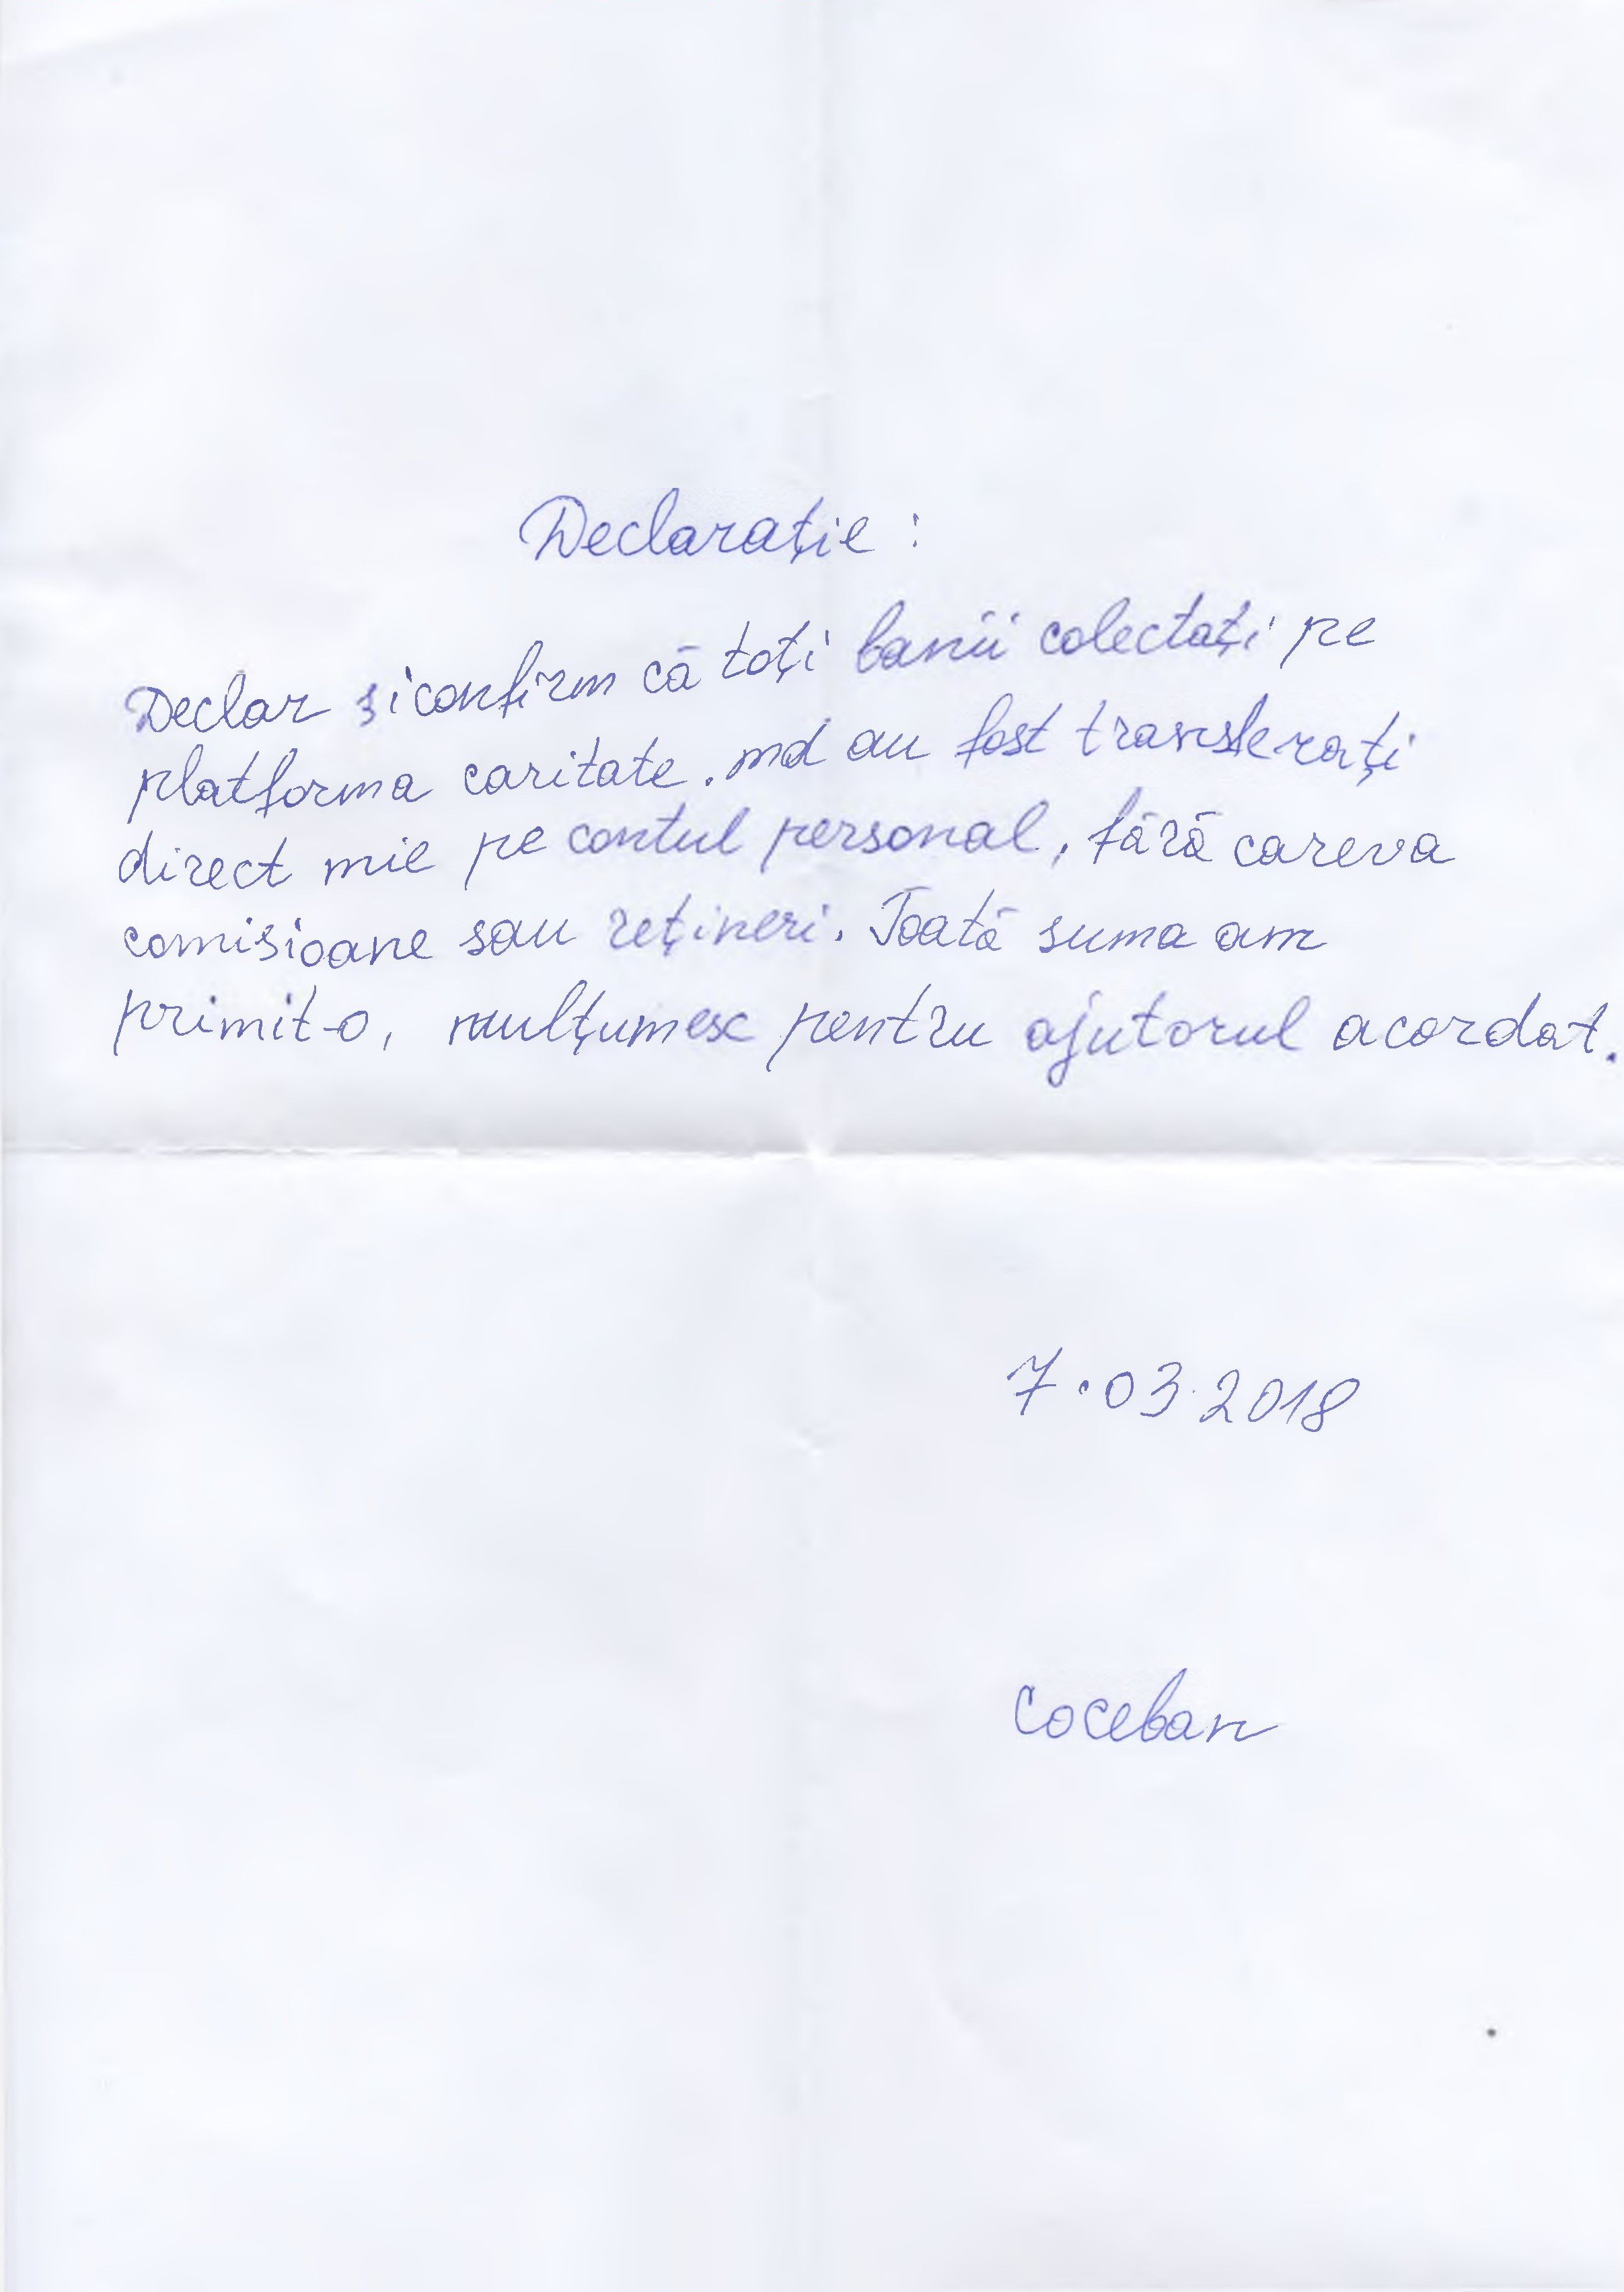 Declarație :
Declar și confirm că toți banii colectați pe
platforma caritate.md au fost transferați
direct mie pe contul personal, fără careva
comisioane sau rețineri. Toată suma am
primit-o, mulțumesc pentru ajutorul acordat.
7.03.2018
Coceban